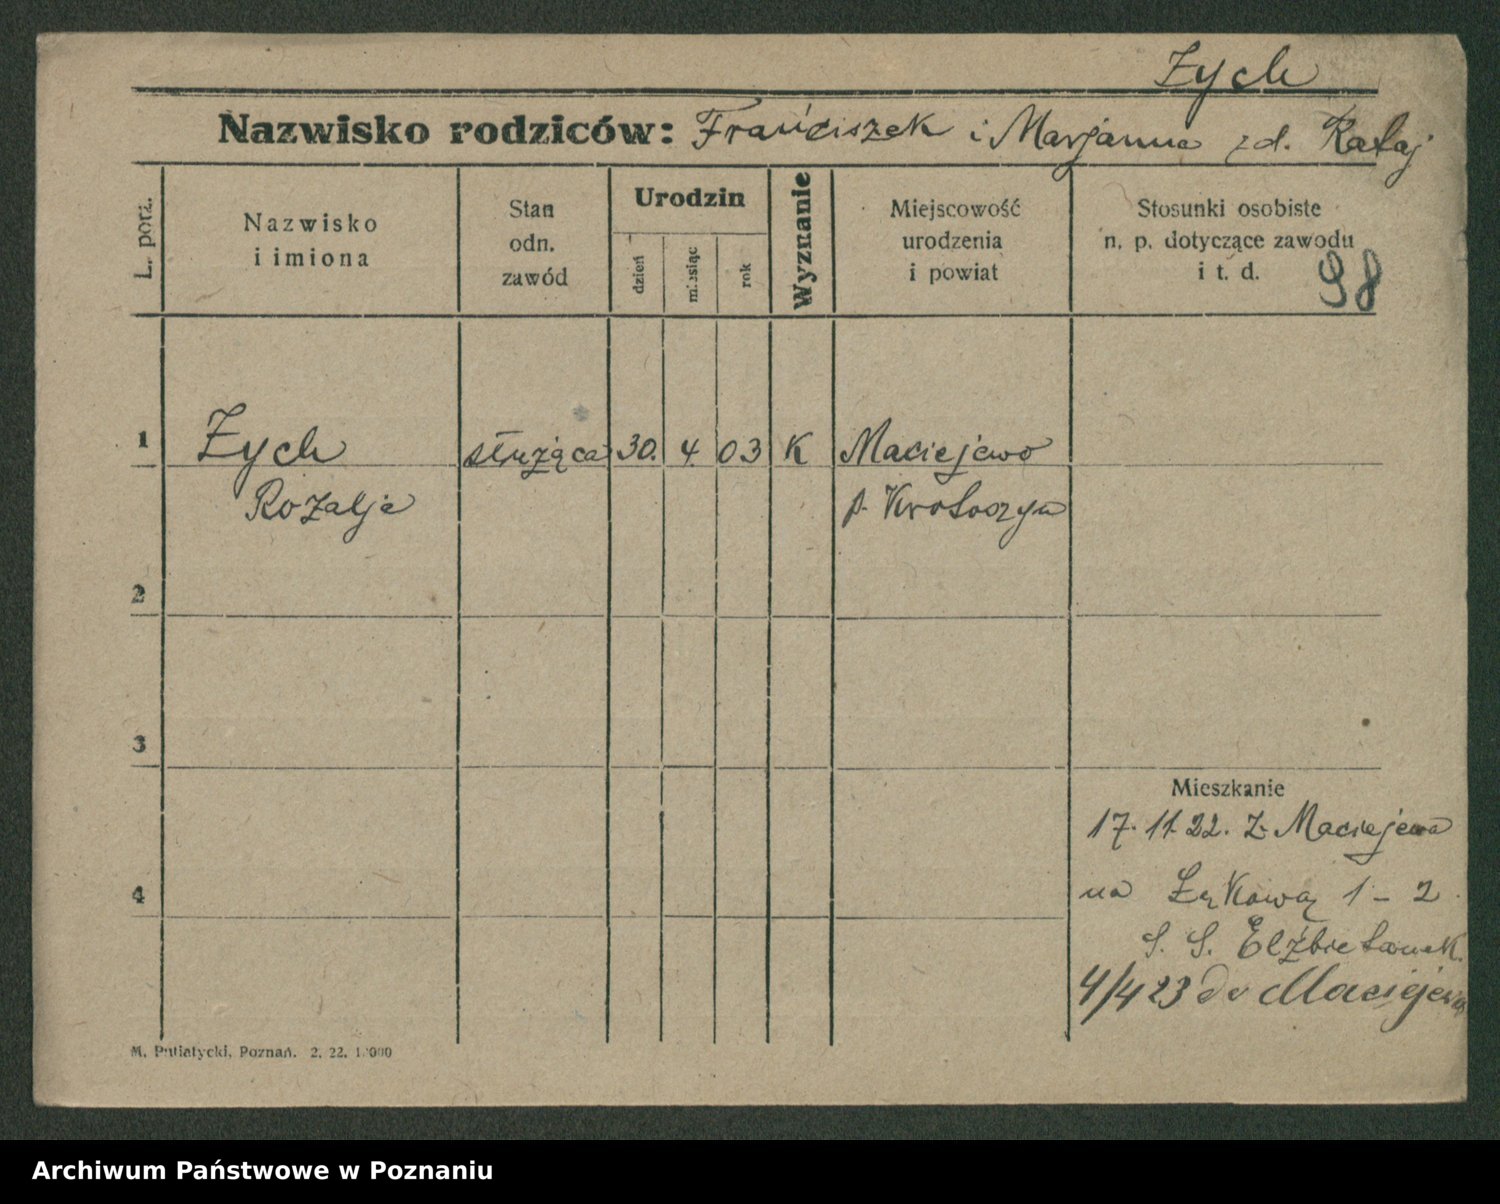 Zych
Nazwisko rodziców: Franciszek i Marjanna zd. Rataj
L. porz.
Nazwisko
i imiona
Stan
odn.
zawód
Urodzin
dzień
miesiąc
rok
Wyznanie
Miejscowość
urodzenia
i powiat
Stosunki osobiste
n. p. dotyczące zawodu
i t. d.
98
1 Zych służąca 30. 4. 03 K Maciejewo
Rozalja p. Krotoszyn
2
3
Mieszkanie
17. 11. 22. z Maciejewa
4
na Łąkową 1 – 2
S. S. Elżbietanek.
4/4 23 do Maciejewa
M. Putiatycki, Poznań. 2. 22.
Archiwum Państwowe w Poznaniu